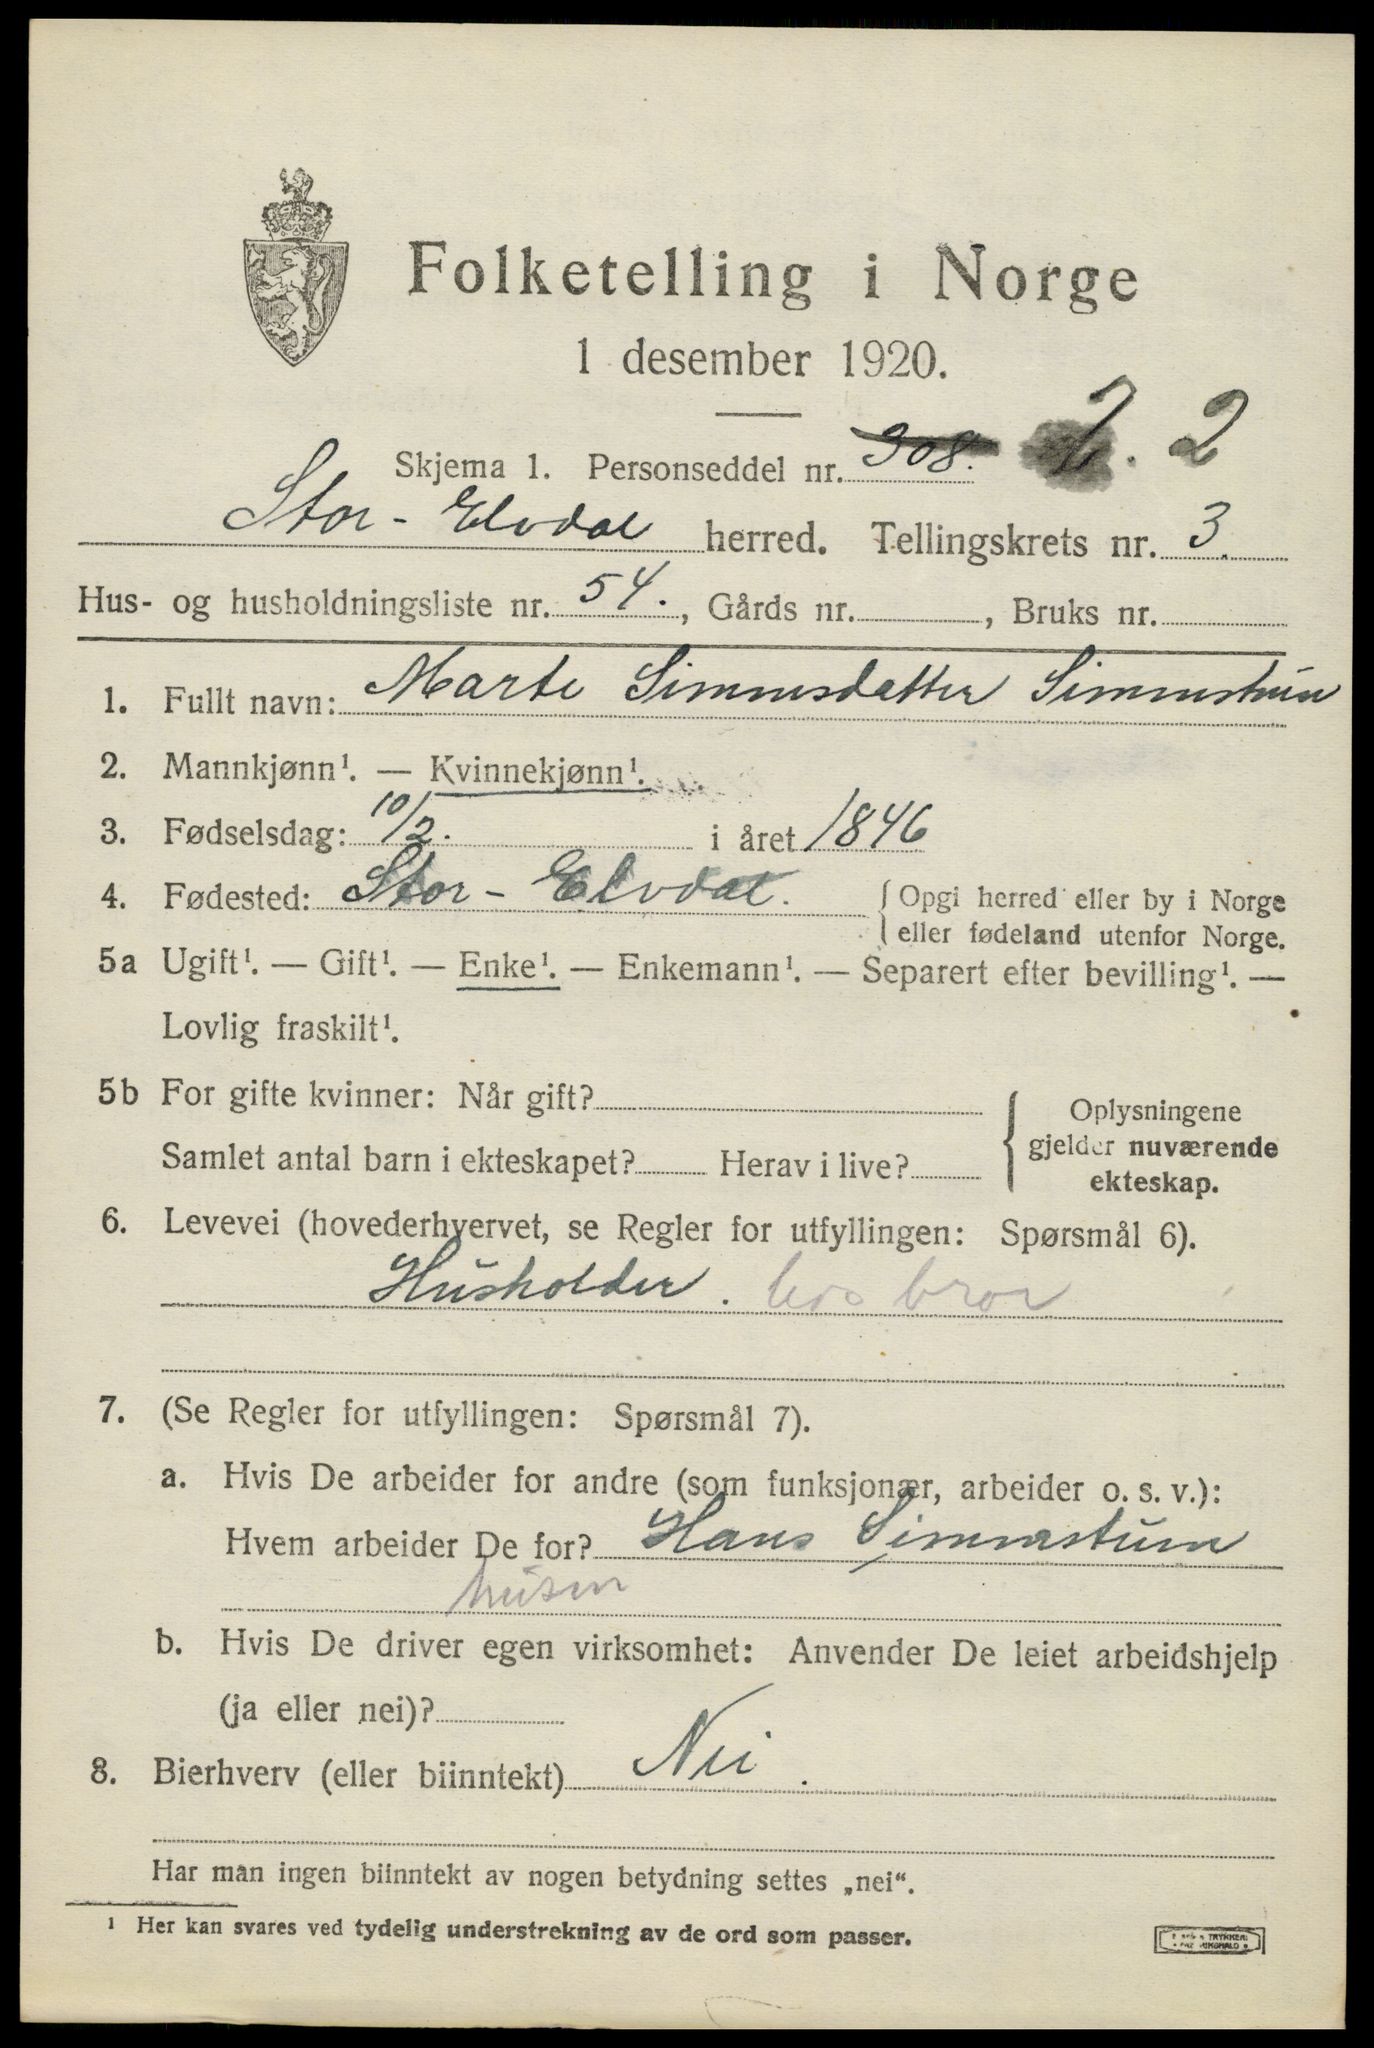 Folketelling i Norge
1 desember 1920.
Skjema 1. Personseddel nr. 308. 2. 2
Stor-Elvdal herred. Tellingskrets nr. 3.
Hus- og husholdningsliste nr. 54., Gårds nr. , Bruks nr.
1. Fullt navn: Marte Simensdatter
2. Mannkjønn¹. — Kvinnekjønn¹.
3. Fødselsdag: 10/2. i året 1846
4. Fødested: Stor-Elvdal. { Opgi herred eller by i Norge
eller fødeland utenfor Norge.
5a Ugift¹. — Gift¹. — Enke¹. — Enkemann¹. — Separert efter bevilling¹. —
Lovlig fraskilt¹.
5b For gifte kvinner: Når gift? { Oplysningene
gjelder nuværende
Samlet antal barn i ekteskapet? Herav i live? ekteskap.
6. Levevei (hovederhvervet, se Regler for utfyllingen: Spørsmål 6).
Husholder. hos bror
7. (Se Regler for utfyllingen: Spørsmål 7).
a. Hvis De arbeider for andre (som funksjonær, arbeider o. s. v.):
Hvem arbeider De for? Hans
b. Hvis De driver egen virksomhet: Anvender De leiet arbeidshjelp
(ja eller nei)?
8. Bierhverv (eller biinntekt) Nei.
Har man ingen biinntekt av nogen betydning settes „nei“.
¹ Her kan svares ved tydelig understrekning av de ord som passer.